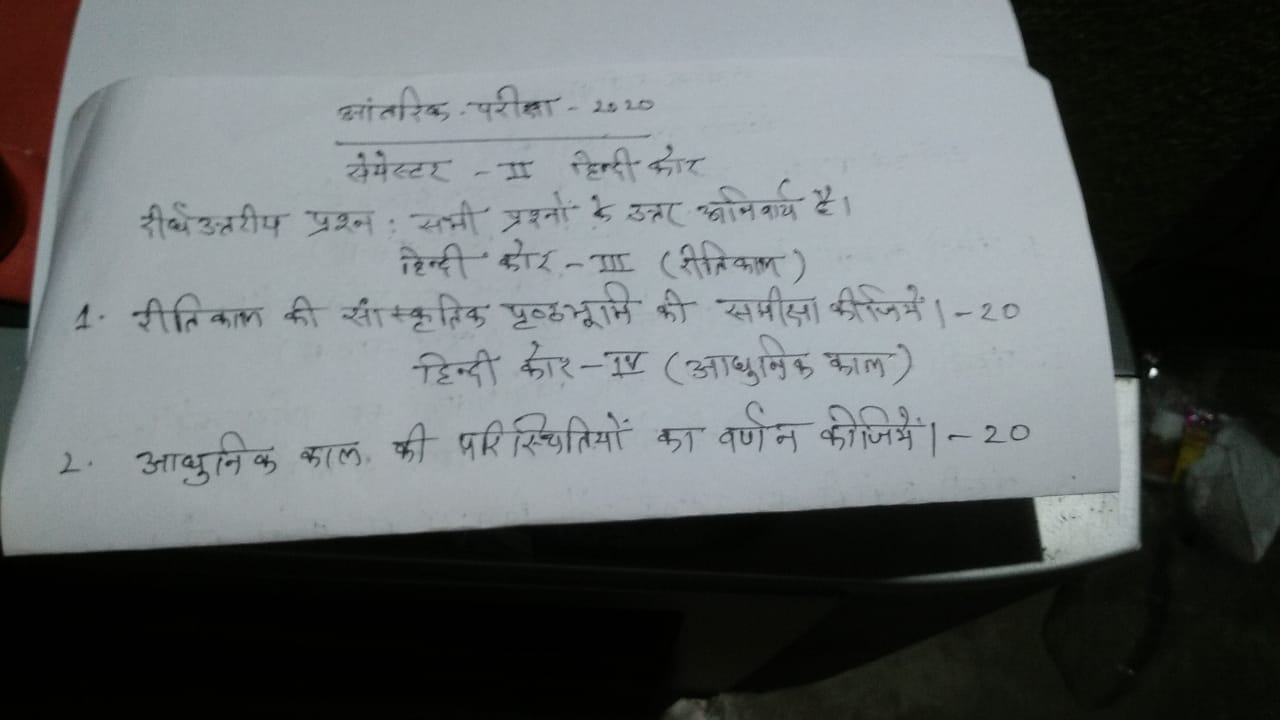 आंतरिक परीक्षा - 2020
सेमेस्टर - II हिन्दी कोर
दीर्घउत्तरीय प्रश्न : सभी प्रश्नों के उत्तर अनिवार्य है।
हिन्दी कोर - III (रीतिकाल)
1. रीतिकाल की सांस्कृतिक पृष्ठभूमि की समीक्षा कीजियें। - 20
हिन्दी कोर - IV (आधुनिक काल)
2. आधुनिक काल की परिस्थितियों का वर्णन कीजियें। - 20